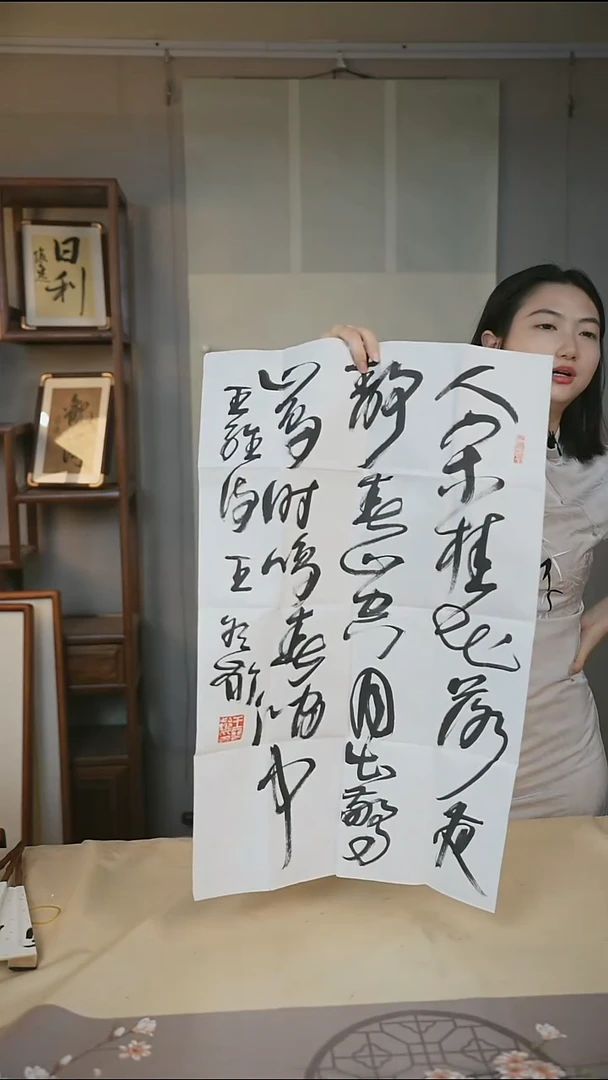 日利
人闲桂花落夜
静春山空月出驚
山鸟时鸣春涧中
王維诗 王